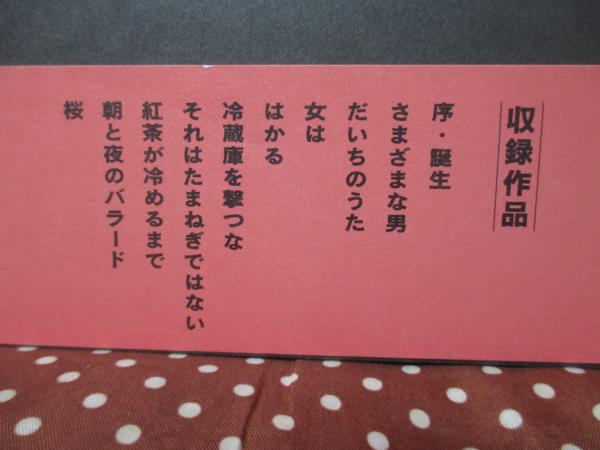 収録作品
序・誕生
さまざまな男
だいちのうた
女は
はかる
冷蔵庫を撃つな
それはたまねぎではない
紅茶が冷めるまで
朝と夜のバラード
桜